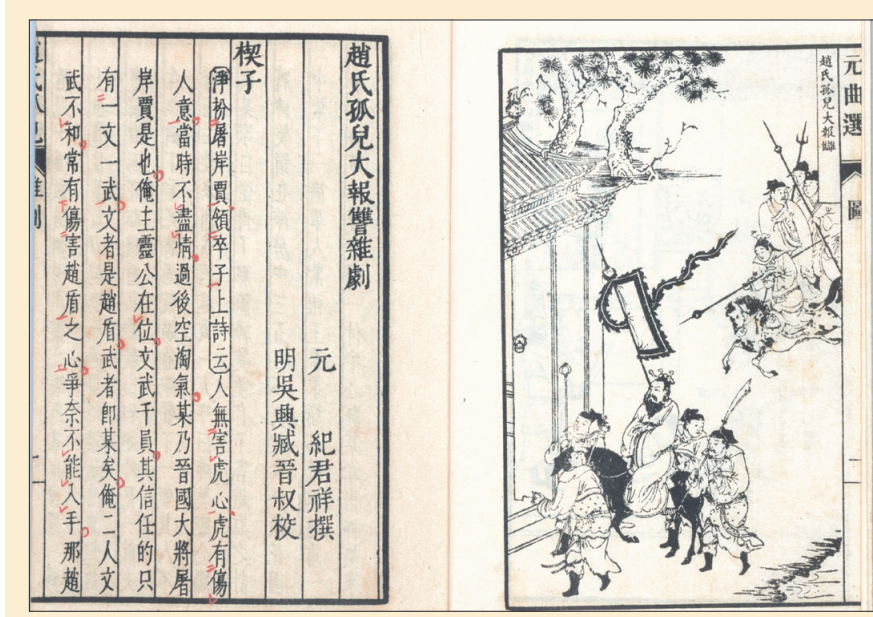 元曲選
圖
趙氏孤兒大報讎
一
趙氏孤兒大報讐雜劇
元 紀君祥撰
明吳興臧晉叔校
楔子
淨扮屠岸賈領卒子上詩云人無害虎心虎有傷
人意當時不盡情過後空淘氣某乃晉國大將屠
岸賈是也俺主靈公在位文武千員其信任的只
有一文一武文者是趙盾武者卽某矣俺二人文
武不和常有傷害趙盾之心爭奈不能入手那趙